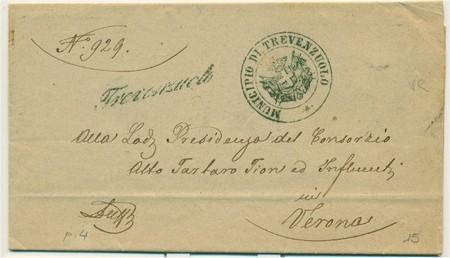 N.° 929.
MUNICIPIO DI TREVENZUOLO
Trevenzuolo
VR
Alla Lod. Presidenza del Consorzio
Alto Tartaro Tion ed Influenti
in
Verona
p. 4
15